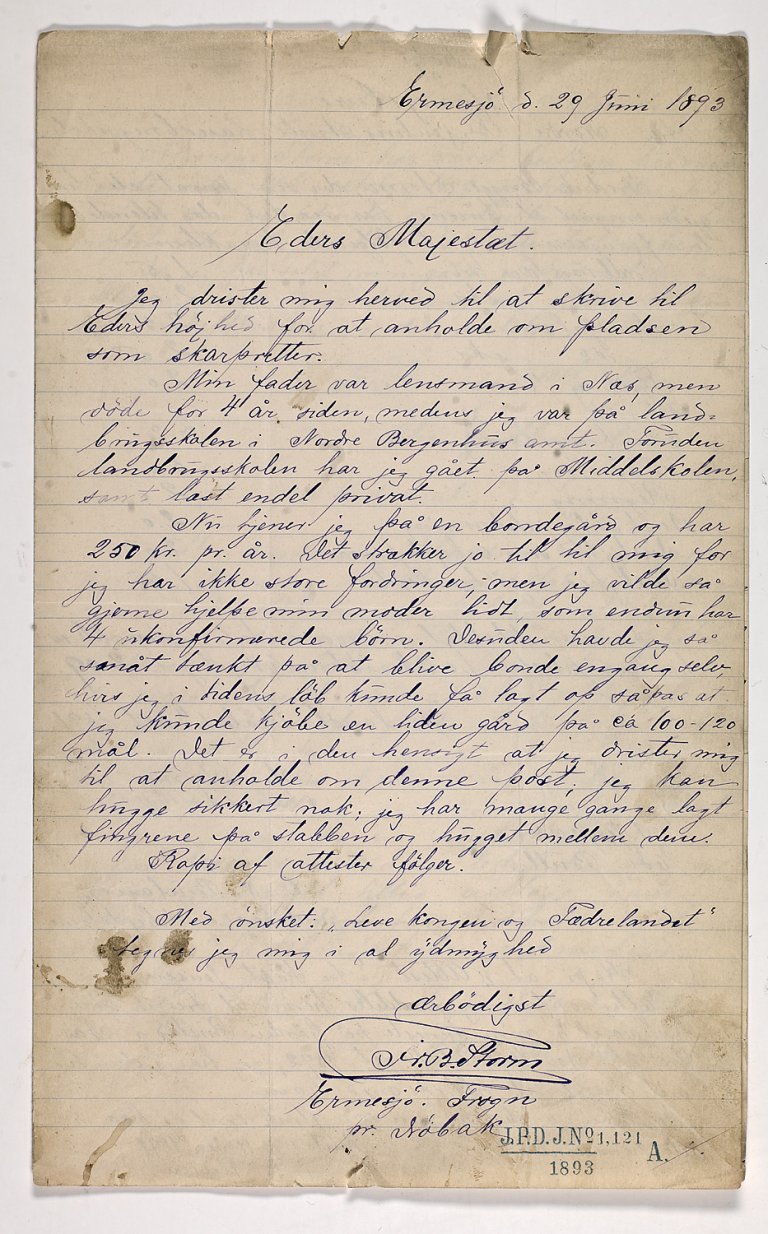 Ermesjö d. 29 Juni 1893
Eders Majestæt.
Jeg drister mig herved til at skrive til
Eders höjhed for at anholde om pladsen
som skarpretter.
Min fader var lensmand i Næs, men
döde for 4 år siden, medens jeg var på land=
brugsskolen i Nordre Bergenhus amt. Foruden
landbrugsskolen har jeg gået på Middelskolen,
samt læst endel privat.
Nu tjener jeg på en bondegård og har
250 kr. pr. år. Det strækker jo til til mig for
jeg har ikke store fordringer; men jeg vilde så
gjerne hjelpe min moder lidt som endnu har
4 ukonfirmerede börn. Desuden havde jeg så
smått tænkt på at blive bonde engang selv,
hvis jeg i tidens löb kunde få lagt op såpas at
jeg kunde kjöbe en liden gård på ca 100-120
mål. Det er i den hensigt at jeg drister mig
til at anholde om denne post; jeg kan
hugge sikkert nok; jeg har mange gange lagt
fingrene på stabben og hugget mellem dem.
Kopi af attester fölger.
Med önsket: „Leve kongen og Fædrelandet"
tegner jeg mig i al ydmyghed
ærbödigst
Fr. B. Storm
Ermesjö. Frogn
pr. Dröbak
J.P.D. J.No 1,121 A.
1893